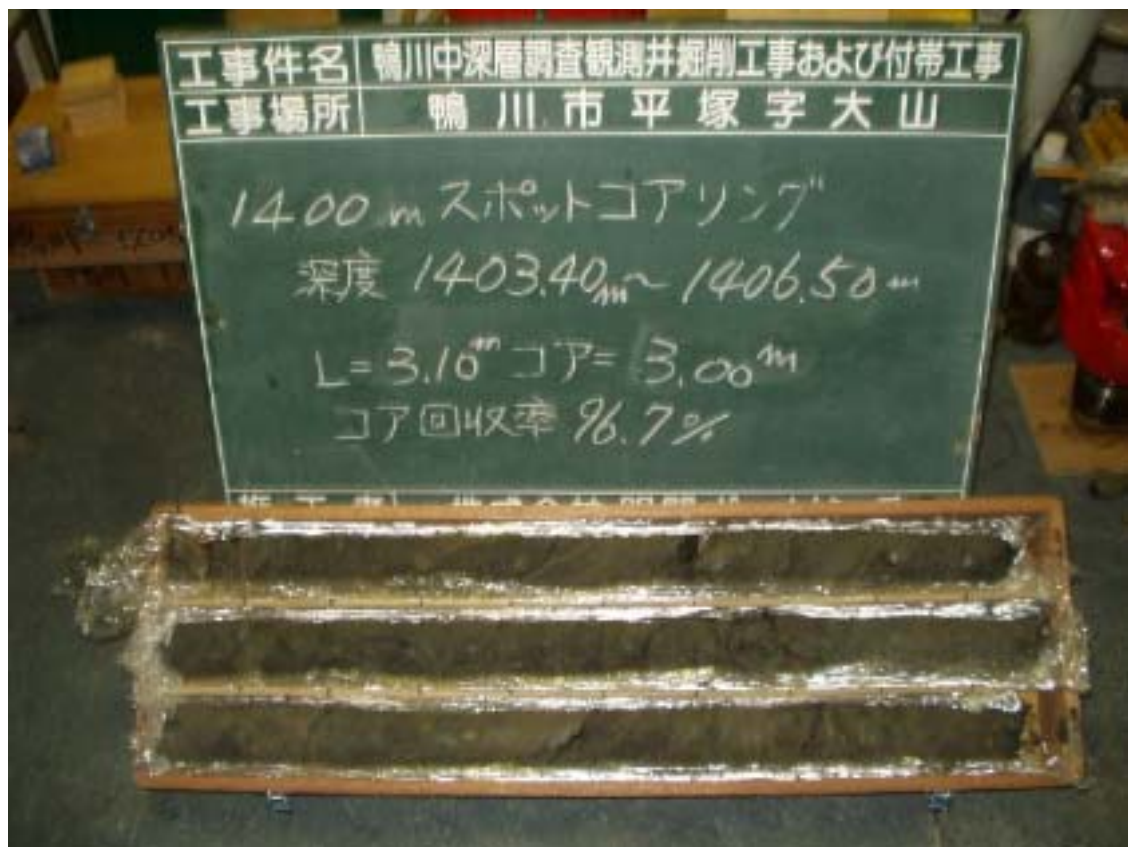 工事件名 鴨川中深層調査観測井掘削工事および付帯工事
工事場所 鴨川市平塚字大山
1400mスポットコアリング
深度 1403.40m〜1406.50m
L=3.10m コア=3.00m
コア回収率 96.7%